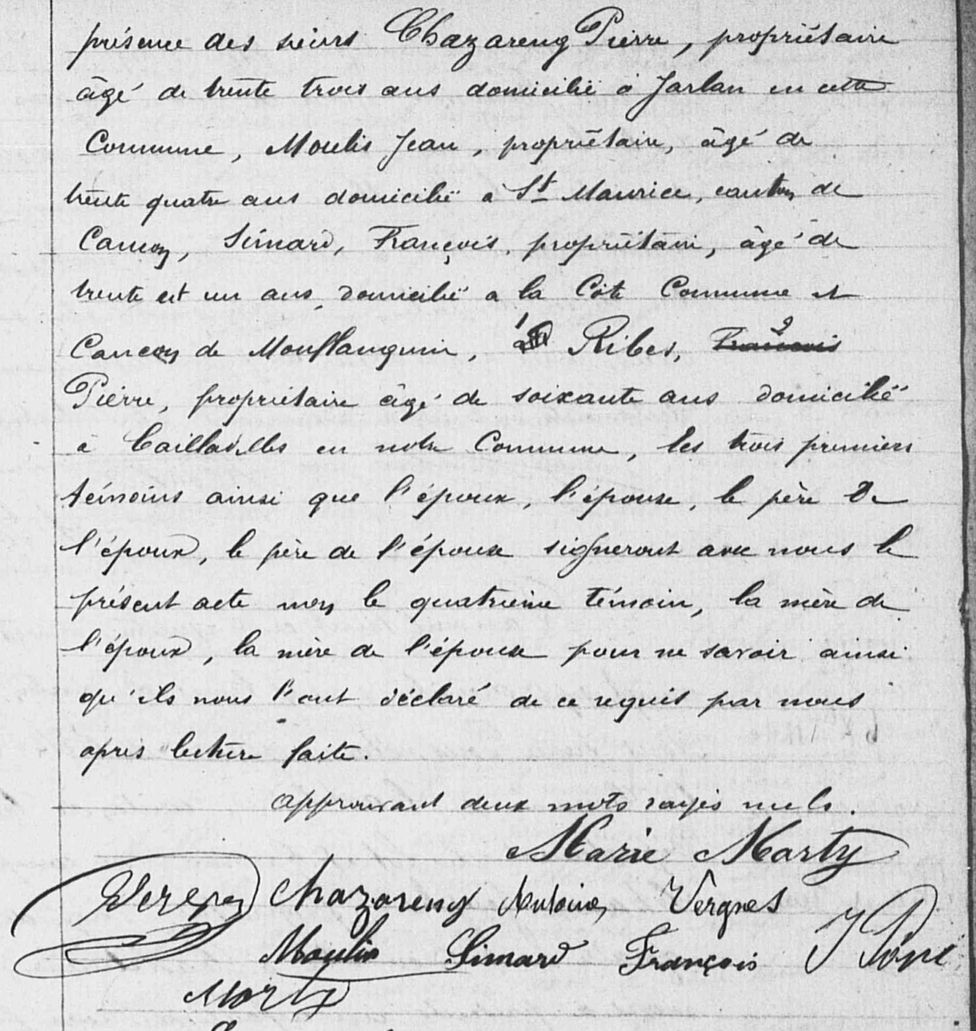 présence des sieurs Chazareng Pierre, propriétaire
âgé de trente trois ans domicilié à Jarlan en cette
Commune, Moulis Jean, propriétaire, âgé de
trente quatre ans domicilié a St Maurice, canton de
Cancon, Simard, François, propriétaire, âgé de
trente et un ans, domicilié a la Côte Commune et
Cancon de Monflanquin, Ribes, François
Pierre, propriétaire âgé de soixante ans domicilié
à Cailladelles en notre Commune, les trois premiers
témoins ainsi que l'époux, l'épouse, le père de
l'époux, le père de l'épouse signeront avec nous le
présent acte non le quatrième témoin, la mère de
l'époux, la mère de l'épouse pour ne savoir ainsi
qu'ils nous l'ont déclaré de ce requis par nous
après lecture faite.
Approuvant deux mots rayés nuls.
Marie Marty
Chazareng Antoine Vergnes
Moulis Simard François
Marty